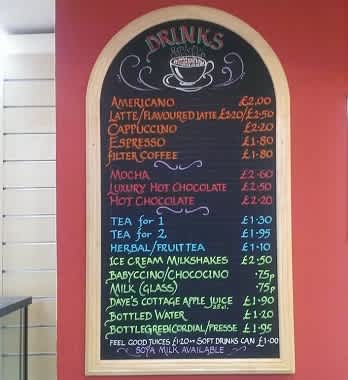 DRINKS
AMERICANO £2.00
LATTE/FLAVOURED LATTE £2.20/£2.50
CAPPUCCINO £2.20
ESPRESSO £1.80
FILTER COFFEE £1.80
MOCHA £2.60
LUXURY HOT CHOCOLATE £2.50
HOT CHOCOLATE £2.20
TEA for 1 £1.30
TEA for 2 £1.95
HERBAL/FRUIT TEA £1.10
ICE CREAM MILKSHAKES £2.50
BABYCCINO/CHOCOCINO .75p
MILK (GLASS) .75p
DAYE'S COTTAGE APPLE JUICE 25cl. £1.90
BOTTLED WATER £1.20
BOTTLEGREEN CORDIAL/PRESSE £1.95
FEEL GOOD JUICES £1.20 SOFT DRINKS CAN £1.00
SOYA MILK AVAILABLE